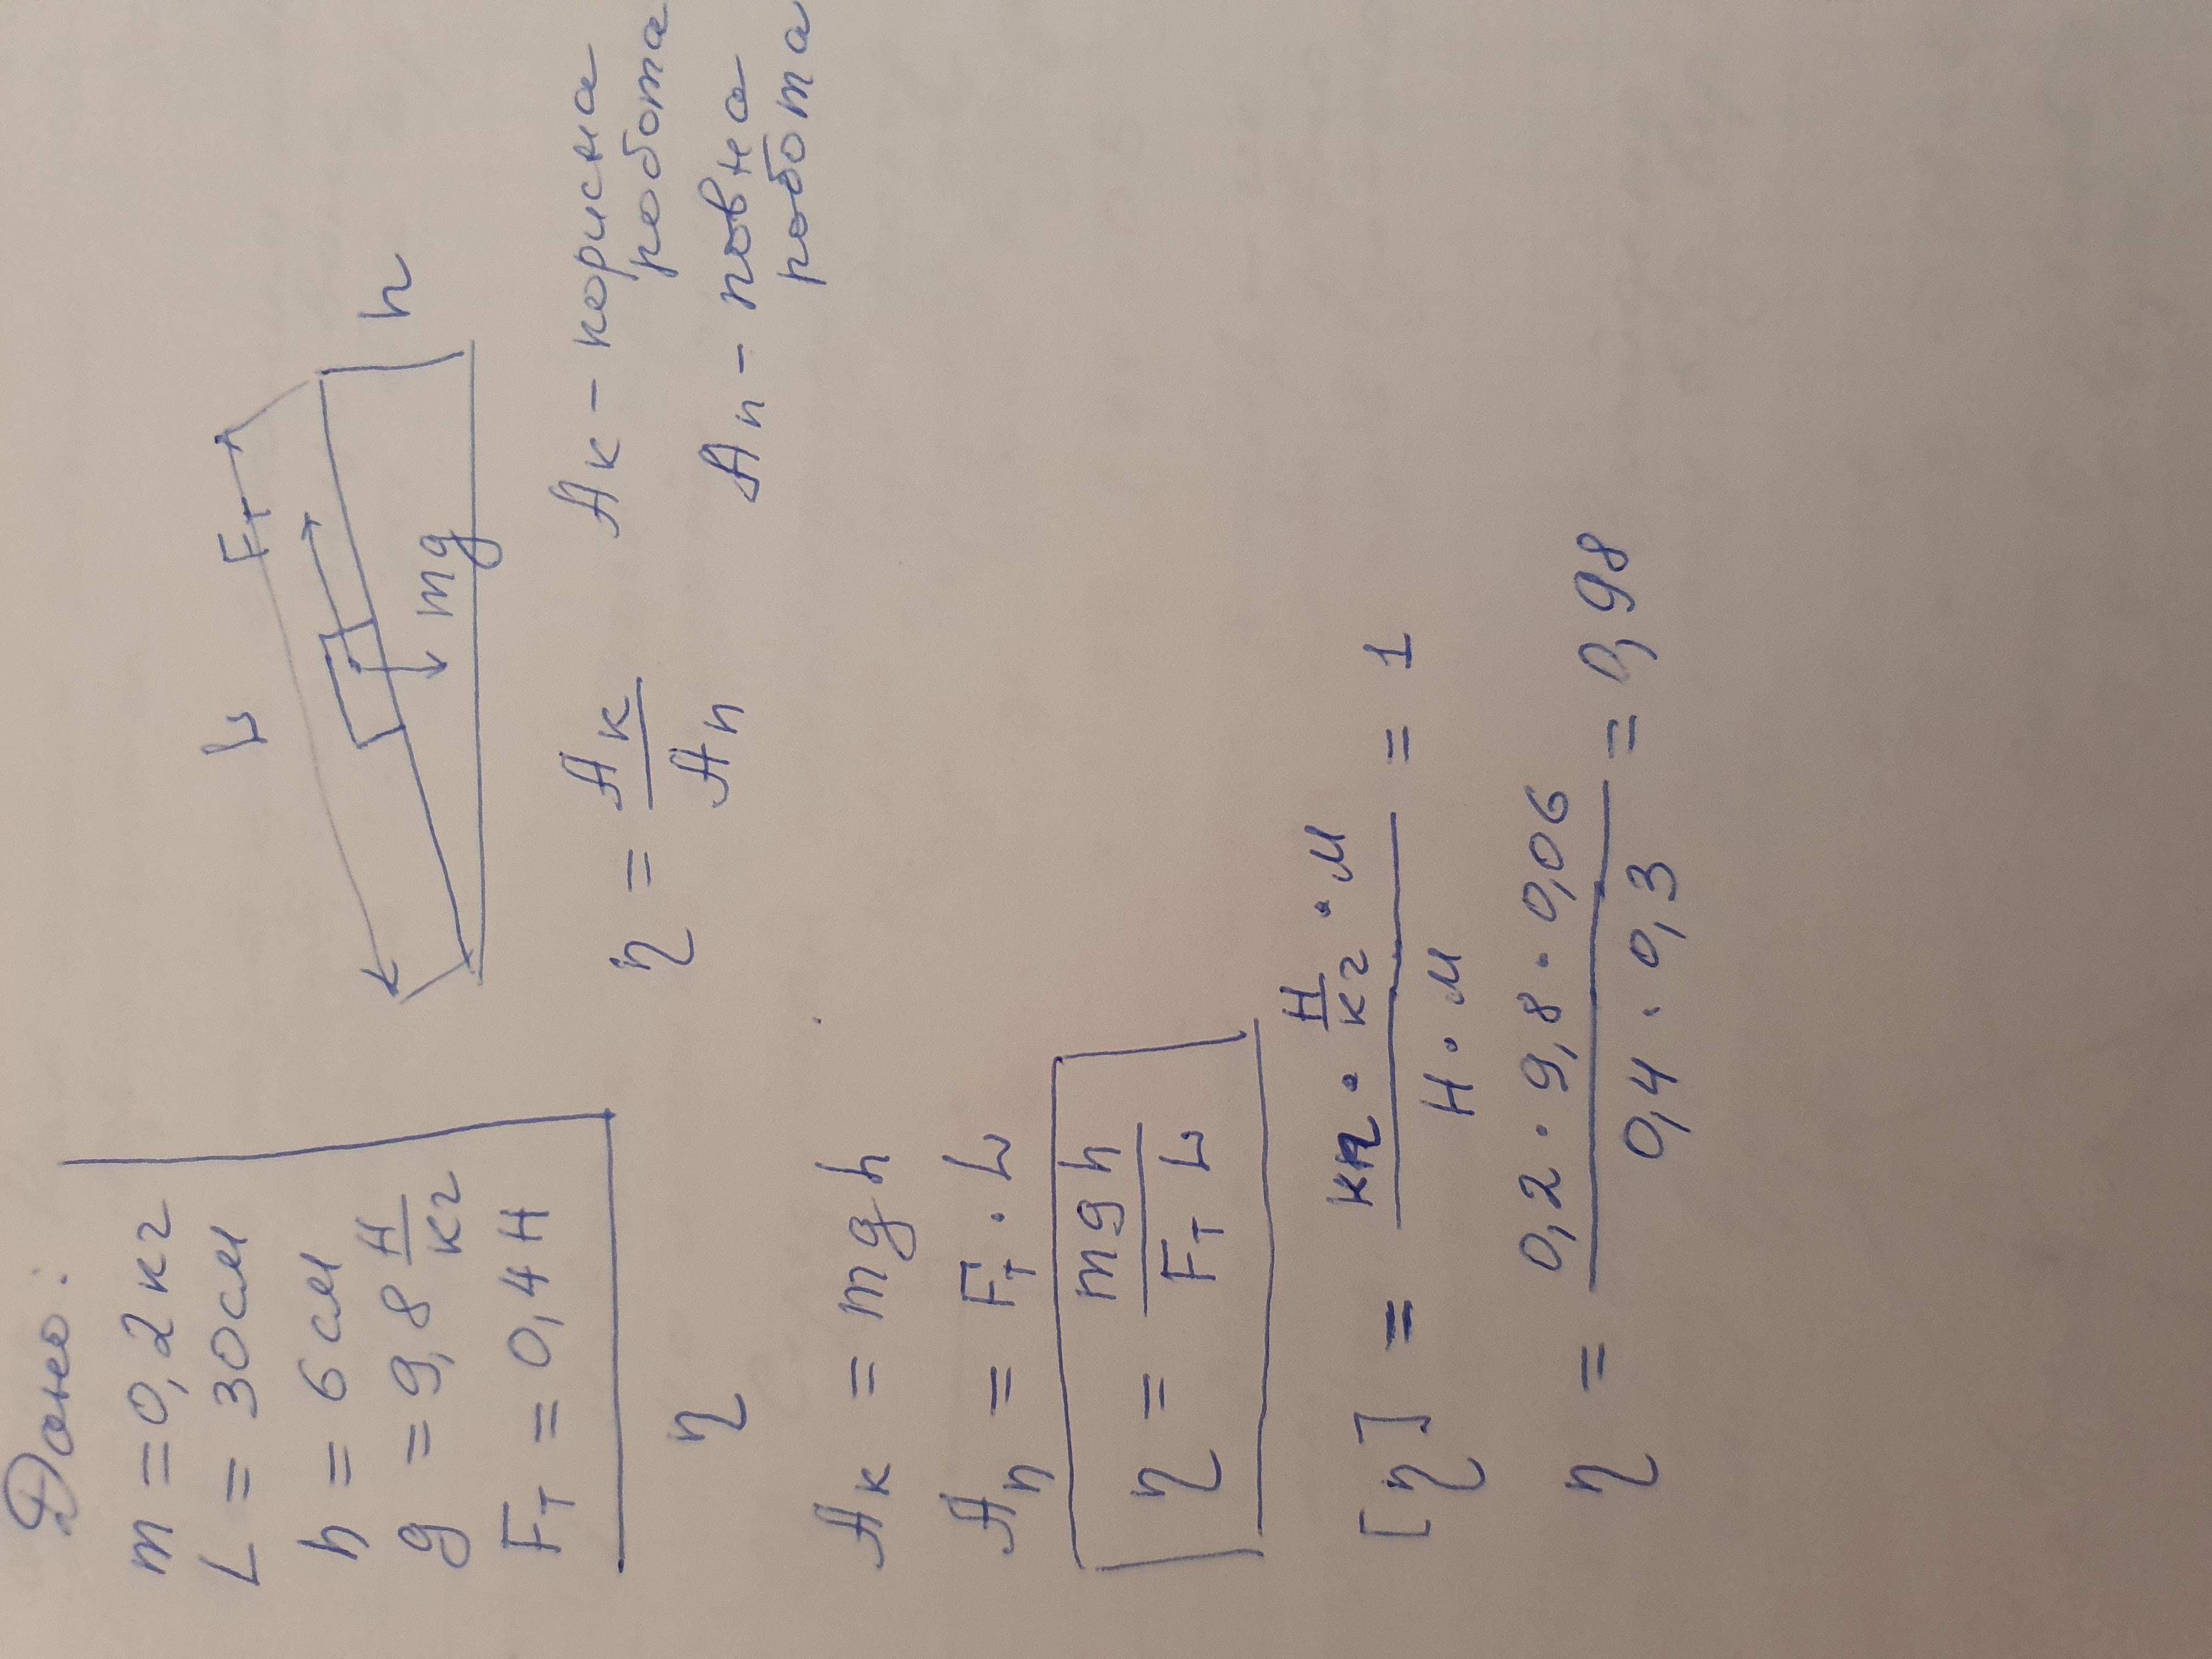 Дано:
m = 0,2 кг
L = 30 см
h = 6 см
g = 9,8 Н/кг
Fт = 0,4 Н
η
L
Fт
mg
h
η = Aк/Aп
Aк - корисна
робота
Aп - повна
робота
Aк = mgh
Aп = Fт · L
η = mgh/Fт L
[η] = кг · Н/кг · м / Н · м = 1
η = 0,2 · 9,8 · 0,06 / 0,4 · 0,3 = 0,98